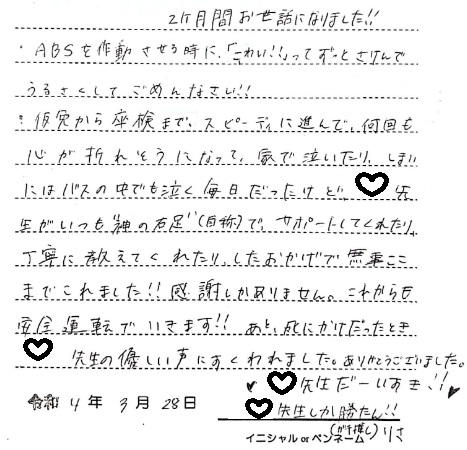 2ヶ月間お世話になりました!!
・ABSを作動させる時に、「こわい!!」ってずっとさけんで
うるさくしてごめんなさい!!
・仮免から卒検まで、スピーディに進んで、何回も
心が折れそうになって、家で泣いたり、しまい
にはバスの中でも泣く毎日だったけど、♡先
生がいつも"神の右足"(自称)で、サポートしてくれたり、
丁寧に教えてくれたり、したおかげで無事ここ
までこれました!!感謝しかありません。これからも
安全運転でいきます!!あと、死にかけだったとき
♡先生の優しい声にすくわれました。ありがとうございました。
♥♡先生だーいすき!!♥
令和4年3月28日
♡先生しか勝たん!!
(ガチ推し)
イニシャル or ペンネーム りさ